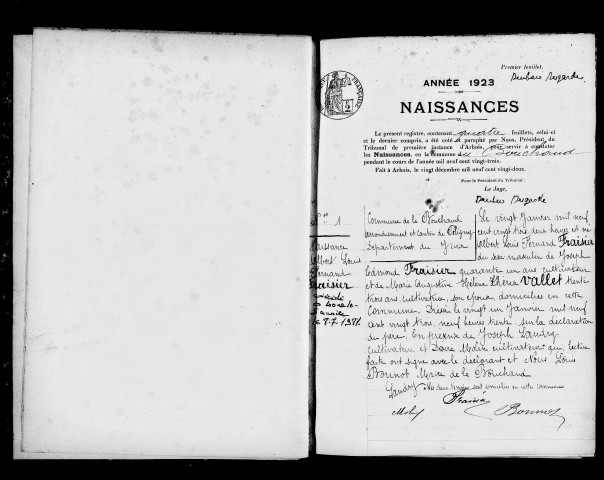 Premier feuillet.
ANNÉE 1923
NAISSANCES
Le présent registre, contenant quatre feuillets, celui-ci
et le dernier compris, a été coté et paraphé par Nous, Président du
Tribunal de première instance d'Arbois, pour servir à constater
les Naissances, en la commune du Bouchaud
pendant le cours de l'année mil neuf cent vingt-trois.
Fait à Arbois, le vingt décembre mil neuf cent vingt-deux.
Pour le Président du Tribunal :
Le Juge,
N° 1
Naissance
Albert Louis
Fernand
Fraisier
décédé
le 8.7.1981
Commune de le Bouchaud
arrondissement et Canton de Poligny
Département du Jura
Le vingt Janvier mil neuf
cent vingt trois, deux heures est né
Albert Louis Fernand Fraisier
du sexe masculin de Joseph
Edmond Fraisier quarante un ans cultivateur
et de Marie Augustine Hélène Vallet trente
trois ans, cultivatrice, son épouse, domiciliés en cette
Commune. Dressé le vingt un Janvier mil neuf
cent vingt trois, neuf heures trente sur la déclaration
du père. En présence de Joseph Landry
cultivateur et cultivateur qui, lecture
faite ont signé avec le déclarant et Nous Louis
Maire de le Bouchaud
Les deux témoins sont domiciliés en cette commune
Landry
Fraisier